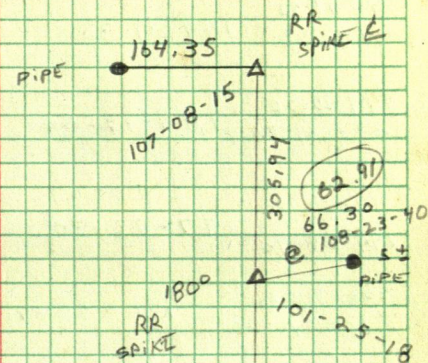 RR
SPIKE ⅊
164.35
PIPE
107-08-15
305.94
62.91
66.30
108-23-40
@
5±
PIPE
180°
101-25-18
RR
SPIKE